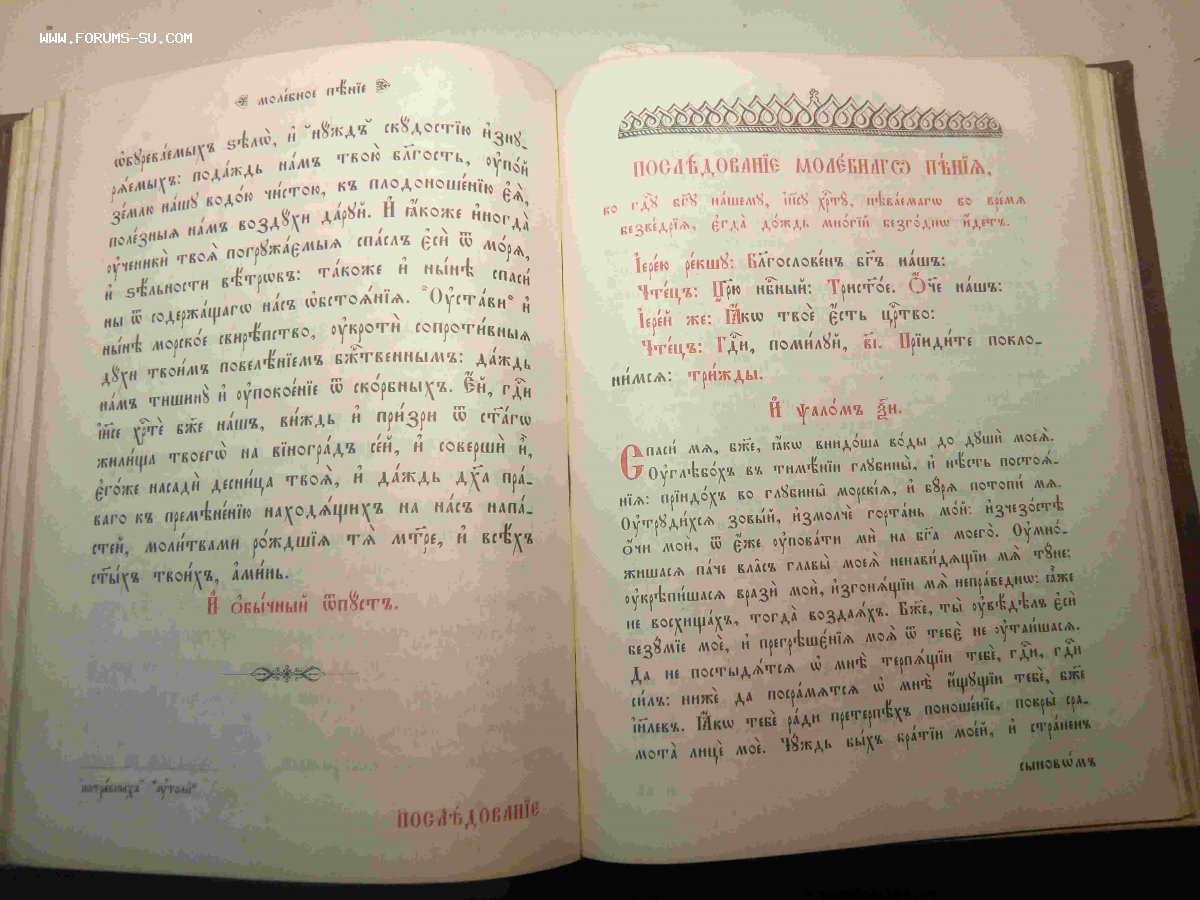 WWW.FORUMS-SU.COM
моле́бное пѣ́нїе
ѡ҆бꙋрева́емыхъ ѕѣлѡ̀, и҆ "нꙋ́ждъ" скꙋ́достїю и҆знꙋ-
рѧ́емыхъ: пода́ждь на́мъ твою̀ бл҃гость, ᲂу҆по́й
зе́млю на́шꙋ водо́ю чи́стою, къ плодоноше́нїю є҆ѧ̀,
поле́зныѧ на́мъ во́здꙋхи да́рꙋй. И҆ ꙗ҆́коже и҆ногда̀
ᲂу҆ченикѝ твоѧ̑ погрꙋжа́ємыѧ спа́слъ є҆сѝ ѿ мо́рѧ,
и҆ ѕѣ́льности вѣ́трѡвъ: та́коже и҆ ны́нѣ спасѝ
ны̀ ѿ содержа́щагѡ на́съ ѡ҆бстоѧ́нїѧ. "Оу҆ста́ви" и҆
ны́нѣ морско́е свирѣ́пство, ᲂу҆кротѝ сопроти́вныѧ
дꙋ́хи твои́мъ повелѣ́нїемъ бж҃твеннымъ: да́ждь
на́мъ тишинꙋ̀ и҆ ᲂу҆покое́нїе ѿ ско́рбныхъ. Є҆́й, гдⷭ҇и
і҆и҃се хрⷭ҇тѐ бж҃е на́шъ, ви́ждь и҆ при́зри ѿ ст҃а́гѡ
жили́ща твоегѡ̀ на вїногра́дъ се́й, и҆ совершѝ и҆̀,
є҆го́же насадѝ десни́ца твоѧ̀, и҆ да́ждь дх҃а пра́-
ваго къ премѣне́нїю находѧ́щихъ на на́съ напа́-
стей, моли́твами ро́ждшїѧ тѧ̀ мт҃ре, и҆ всѣ́хъ
ст҃ы́хъ твои́хъ, а҆ми́нь.
И҆ ѻ҆бы́чный ѿпꙋ́стъ.
потре́бныхъ "ᲂу҆толѝ"
ПОСЛѢ́ДОВАНЇЕ
ПОСЛѢ́ДОВАНЇЕ МОЛЕ́БНАГѠ ПѢ́НЇѦ,
ко гдⷭ҇ꙋ бг҃ꙋ на́шемꙋ, і҆и҃сꙋ хрⷭ҇тꙋ̀, пѣва́емагѡ во вре́мѧ
безве́дрїѧ, є҆гда̀ до́ждь мно́гїй безго́днѡ и҆́детъ.
І҆ере́ю ре́кшꙋ: Бл҃гослове́нъ бг҃ъ на́шъ:
Чте́цъ: Цр҃ю̀ нбⷭ҇ный: Трист҃о́е. Ѻ҆́ч҃е на́шъ:
І҆ере́й же: Ꙗ҆́кѡ твоѐ є҆́сть црⷭ҇тво:
Чте́цъ: Гдⷭ҇и, поми́лꙋй, в҃і. Прїиди́те покло-
ни́мсѧ: три́жды.
И҆ ѱало́мъ ѯ҃и.
Спаси́ мѧ, бж҃е, ꙗ҆́кѡ внидо́ша во́ды до дꙋшѝ моеѧ̀.
Оу҆глѣбо́хъ въ тимѣ́нїи глꙋбины̀, и҆ нѣ́сть постоѧ́-
нїѧ: прїидо́хъ во глꙋбины̑ морскі̑ѧ, и҆ бꙋ́рѧ потопи́ мѧ.
Оу҆трꙋди́хсѧ зовы́й, и҆змолчѐ горта́нь мо́й: и҆зчезо́стѣ
ѻ҆́чи моѝ, ѿ є҆́же ᲂу҆пова́ти мѝ на бг҃а моего̀. Оу҆мно́-
жишасѧ па́че вла̑съ главы̀ моеѧ̀ ненави́дѧщїи мѧ̀ тꙋ́не:
ᲂу҆крѣпи́шасѧ вразѝ моѝ, и҆згонѧ́щїи мѧ̀ непра́веднѡ: ꙗ҆̀же
не восхища́хъ, тогда̀ воздаѧ́хъ. Бж҃е, ты̀ ᲂу҆вѣ́дѣлъ є҆сѝ
безꙋ́мїе моѐ, и҆ прегрѣшє́нїѧ моѧ̑ ѿ тебє̀ не ᲂу҆таи́шасѧ.
Да не постыдѧ́тсѧ ѡ҆ мнѣ̀ терпѧ́щїи тебѐ, гдⷭ҇и, гдⷭ҇и
си́лъ: нижѐ да посра́мѧтсѧ ѡ҆ мнѣ̀ и҆́щꙋщїи тебѐ, бж҃е
і҆и҃левъ. Ꙗ҆́кѡ тебє̀ ра́ди претерпѣ́хъ поноше́нїе, покры̀ сра-
мота̀ лицѐ моѐ. Чꙋ́ждь бы́хъ бра́тїи мое́й, и҆ стра́ненъ
сыновѡ́мъ